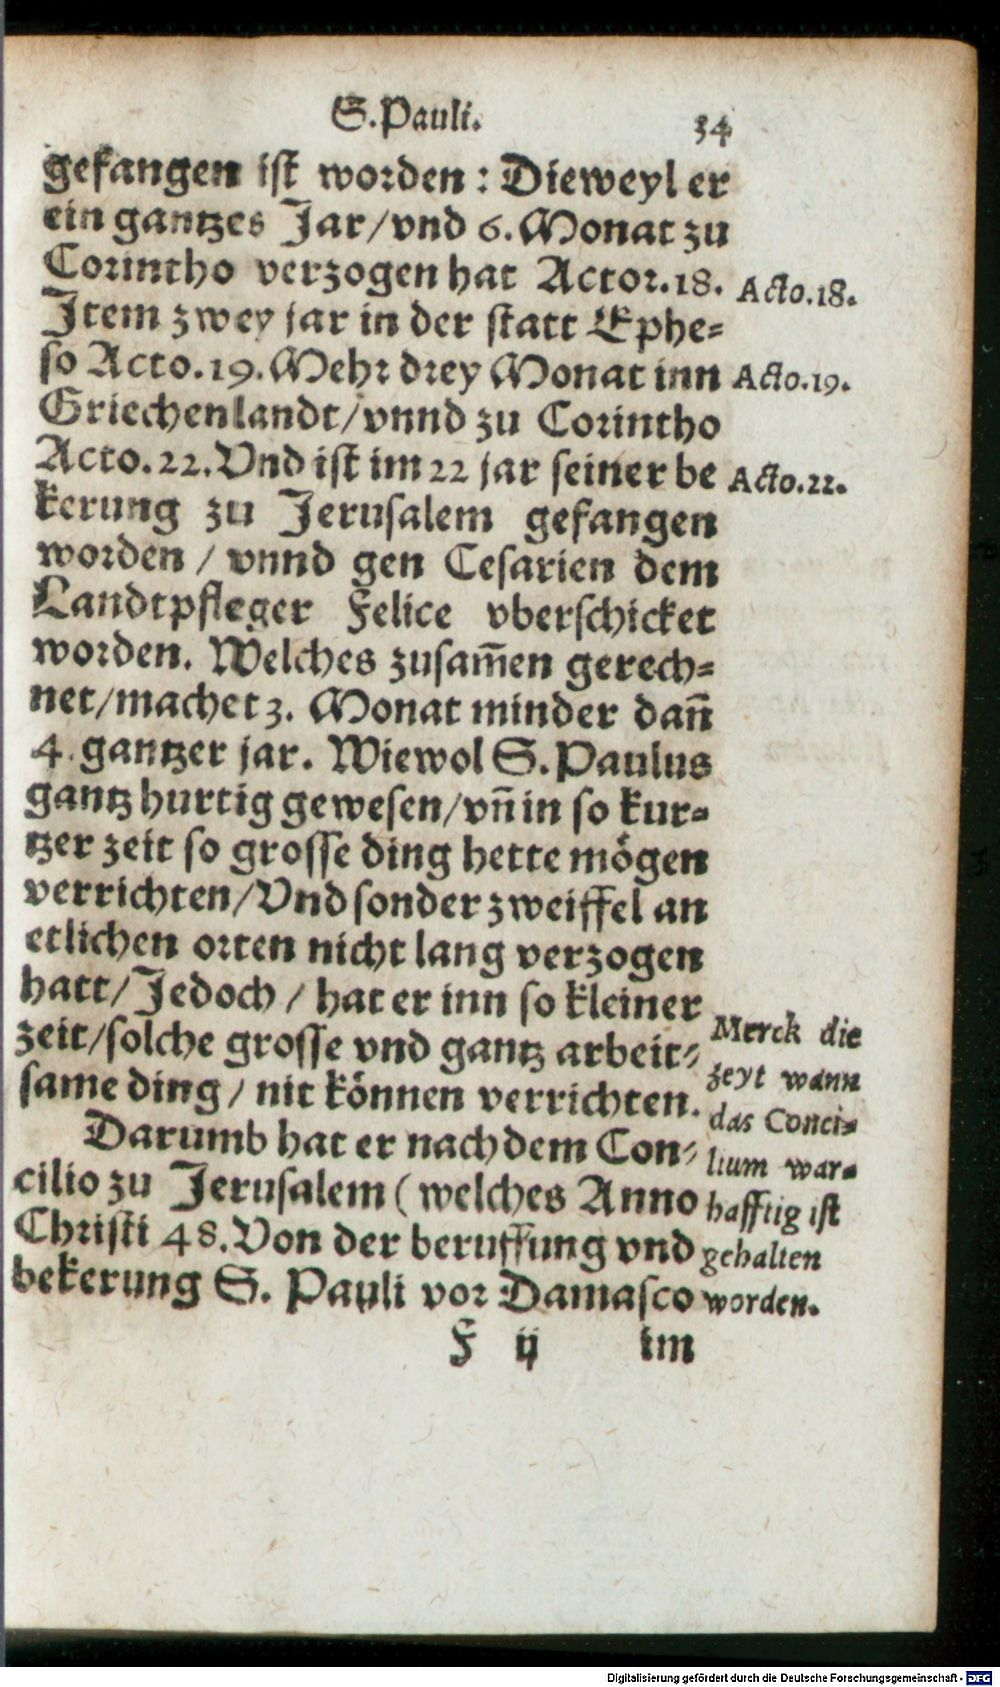 S. Pauli. 34
gefangen ist worden: Dieweyl er
ein gantzes Jar/vnd 6. Monat zu
Corintho verzogen hat Actor. 18.
Acto. 18.
Item zwey jar in der statt Ephe=
so Acto. 19. Mehr drey Monat inn
Acto. 19.
Griechenlandt/vnnd zu Corintho
Acto. 22. Vnd ist im 22 jar seiner be
Acto. 22.
kerung zu Jerusalem gefangen
worden / vnnd gen Cesarien dem
Landtpfleger Felice vberschicket
worden. Welches zusam̃en gerech=
net/machet 3. Monat minder dañ
4. gantzer jar. Wiewol S. Paulus
gantz hurtig gewesen/vñ in so kur=
tzer zeit so grosse ding hette mögen
verrichten/Vnd sonder zweiffel an
etlichen orten nicht lang verzogen
hatt/Jedoch / hat er inn so kleiner
zeit/solche grosse vnd gantz arbeit=
same ding / nit können verrichten.
Darumb hat er nach dem Con=
cilio zu Jerusalem (welches Anno
Christi 48. Von der beruffung vnd
bekerung S. Pauli vor Damasco
Merck die
zeyt wann
das Conci=
lium war=
hafftig ist
gehalten
worden.
F ij im
Digitalisierung gefördert durch die Deutsche Forschungsgemeinschaft - DFG